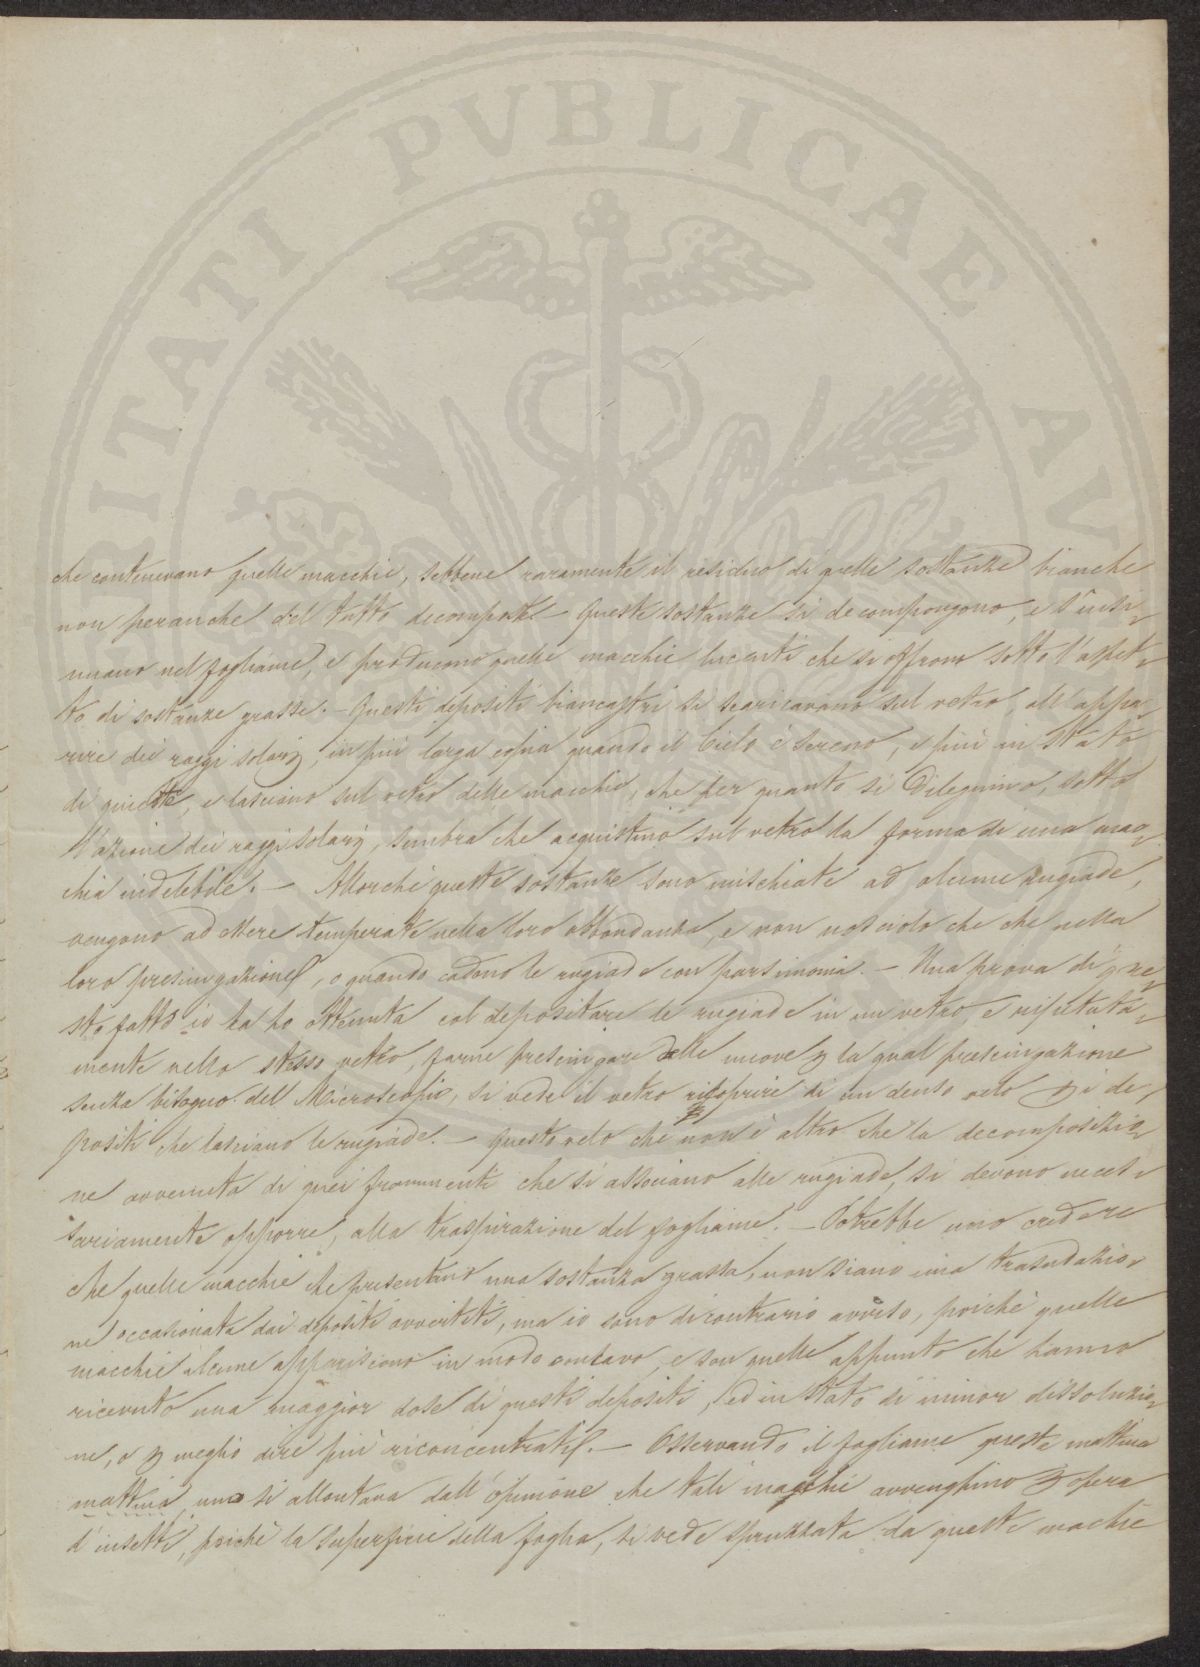 PVBLICAE
RITATI
AV
che contenevano quelle macchie, sebbene raramente il residuo di quelle sostanze bianche
non peranche del tutto decomposte – Queste sostanze si decompongono, e s'insi-
nuano nel fogliame, e producono quelle macchie lucenti che si offrono sotto l'aspet-
to di sostanze grasse. – Questi depositi biancastri si scaricavano sul vetro all'appa-
rire dei raggi solarj, in più larga copia quando il Cielo è sereno, e più in stato
di quiete, e lasciano sul vetro delle macchie, che per quanto si dileguino, sotto
l'azione dei raggi solarj, sembra che acquistino sul vetro la forma di una mac-
chia indelebile. – Allorchè queste sostanze sono mischiate ad alcune rugiade,
vengono ad essere temperate nella loro abbondanza, e non nosciolo che che nella
loro presciugazione, o quando cadono le rugiade con parsimonia. – Una prova di que-
sto fatto io la ho ottenuta col depositare le rugiade in un vetro, e ripetuta-
mente nello stesso vetro, farne presciugare delle nuove p la qual presciugazione
senza bisogno del Microscopio, si vede il vetro ricoprire di un denso velo p i de-
positi che lasciano le rugiade. – Questo velo che non è altro che la decomposizio-
ne avvenuta di quei frammenti che si associano alle rugiade, si devono neces-
sariamente opporre, alla traspirazione del fogliame. – Potrebbe uno credere
che quelle macchie che presentano una sostanza grassa, non siano una trasudazio-
ne occasionata dai depositi avvertiti, ma io sono di contrario avviso, poichè quelle
macchie alcune appariscono in modo concavo, e son quelle appunto che hanno
ricevuto una maggior dose di questi depositi, ed in stato di minor dissoluzio-
ne, o p meglio dire più riconcentrati. – Osservando il fogliame queste mattina
mattina uno si allontana dall'opinione che tali macchie avvenghino p opera
d'insetti, poichè la superficie della foglia, si vede spruzzata da queste macchie